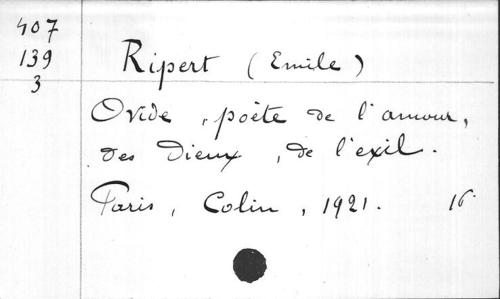 407
139
3
Ripert (Emile)
Ovide, poète de l'amour,
des Dieux, de l'exil.
Paris, Colin, 1921. 16°